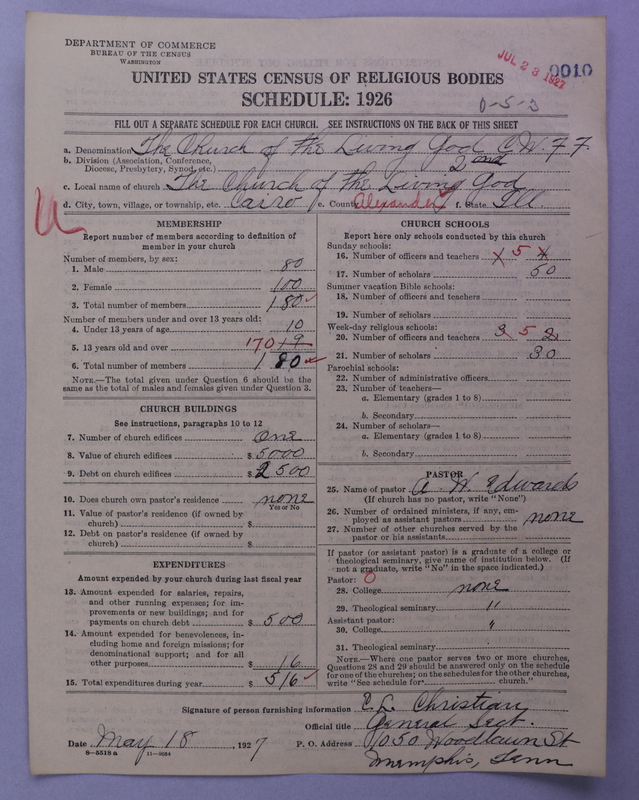 DEPARTMENT OF COMMERCE
BUREAU OF THE CENSUS
WASHINGTON
JUL 23 1927
0010
UNITED STATES CENSUS OF RELIGIOUS BODIES
SCHEDULE: 1926
0-5-3
FILL OUT A SEPARATE SCHEDULE FOR EACH CHURCH. SEE INSTRUCTIONS ON THE BACK OF THIS SHEET
a. Denomination The Church of the Living God C.W.F.F.
b. Division (Association, Conference, Diocese, Presbytery, Synod, etc.) 2nd
c. Local name of church The Church of the Living God
d. City, town, village, or township, etc. Cairo e. County Alexander f. State Ill
MEMBERSHIP
Report number of members according to definition of
member in your church
Number of members, by sex:
1. Male 80
2. Female 100
3. Total number of members 180
Number of members under and over 13 years old:
4. Under 13 years of age 10
5. 13 years old and over 170
6. Total number of members 180
NOTE.—The total given under Question 6 should be the
same as the total of males and females given under Question 3.
CHURCH BUILDINGS
See instructions, paragraphs 10 to 12
7. Number of church edifices One
8. Value of church edifices $ 5000
9. Debt on church edifices $ 2500
10. Does church own pastor's residence none
Yes or No
11. Value of pastor's residence (if owned by
church) $
12. Debt on pastor's residence (if owned by
church) $
EXPENDITURES
Amount expended by your church during last fiscal year
13. Amount expended for salaries, repairs,
and other running expenses; for im-
provements or new buildings; and for
payments on church debt $ 500
14. Amount expended for benevolences, in-
cluding home and foreign missions; for
denominational support; and for all
other purposes $ 16
15. Total expenditures during year $ 516
CHURCH SCHOOLS
Report here only schools conducted by this church
Sunday schools:
16. Number of officers and teachers 5
17. Number of scholars 50
Summer vacation Bible schools:
18. Number of officers and teachers
19. Number of scholars
Week-day religious schools:
20. Number of officers and teachers 3 5 2
21. Number of scholars 30
Parochial schools:
22. Number of administrative officers
23. Number of teachers—
a. Elementary (grades 1 to 8)
b. Secondary
24. Number of scholars—
a. Elementary (grades 1 to 8)
b. Secondary
PASTOR
25. Name of pastor A. W. Edwards
(If church has no pastor, write "None")
26. Number of ordained ministers, if any, em-
ployed as assistant pastors none
27. Number of other churches served by the
pastor or his assistants
If pastor (or assistant pastor) is a graduate of a college or
theological seminary, give name of institution below. (If
not a graduate, write "No" in the space indicated.)
Pastor: 0
28. College none
29. Theological seminary "
Assistant pastor:
30. College "
31. Theological seminary
NOTE.—Where one pastor serves two or more churches,
Questions 28 and 29 should be answered only on the schedule
for one of the churches; on the schedules for the other churches,
write "See schedule for church."
Signature of person furnishing information E. L. Christian
Official title General Sect.
Date May 18, 1927 P. O. Address 1050 Woodlawn St
8-5518 a 11-9064
Memphis, Tenn